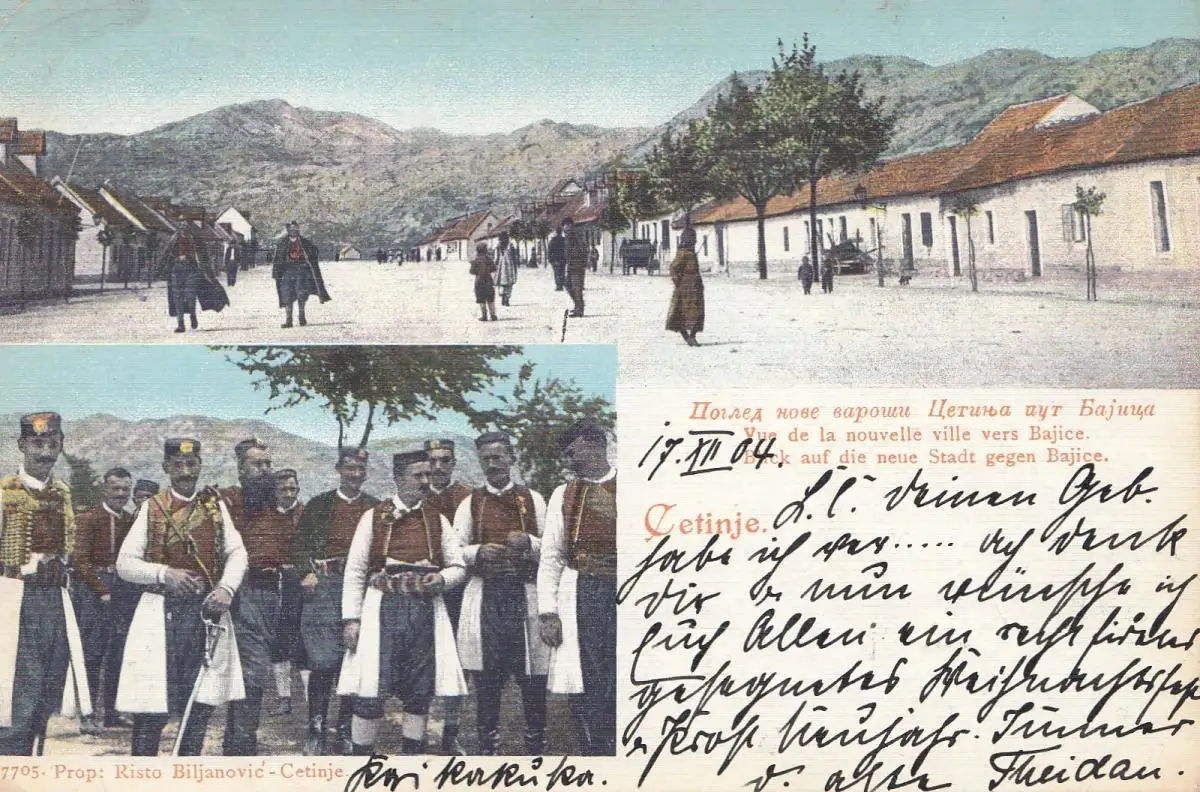 Поглед нове вароши Цетиња пут Бајица
Vue de la nouvelle ville vers Bajice.
Blick auf die neue Stadt gegen Bajice.
17. XII 04.
Cetinje.
L. C. Deinen Geb.
habe ich ver..... ach denk
Dir & nun wünsche ich
Euch Allen ein recht
gesegnetes Weihnachtsfest
& Prost Neujahr. Immer
d. alte
7705. Prop: Risto Biljanović - Cetinje.